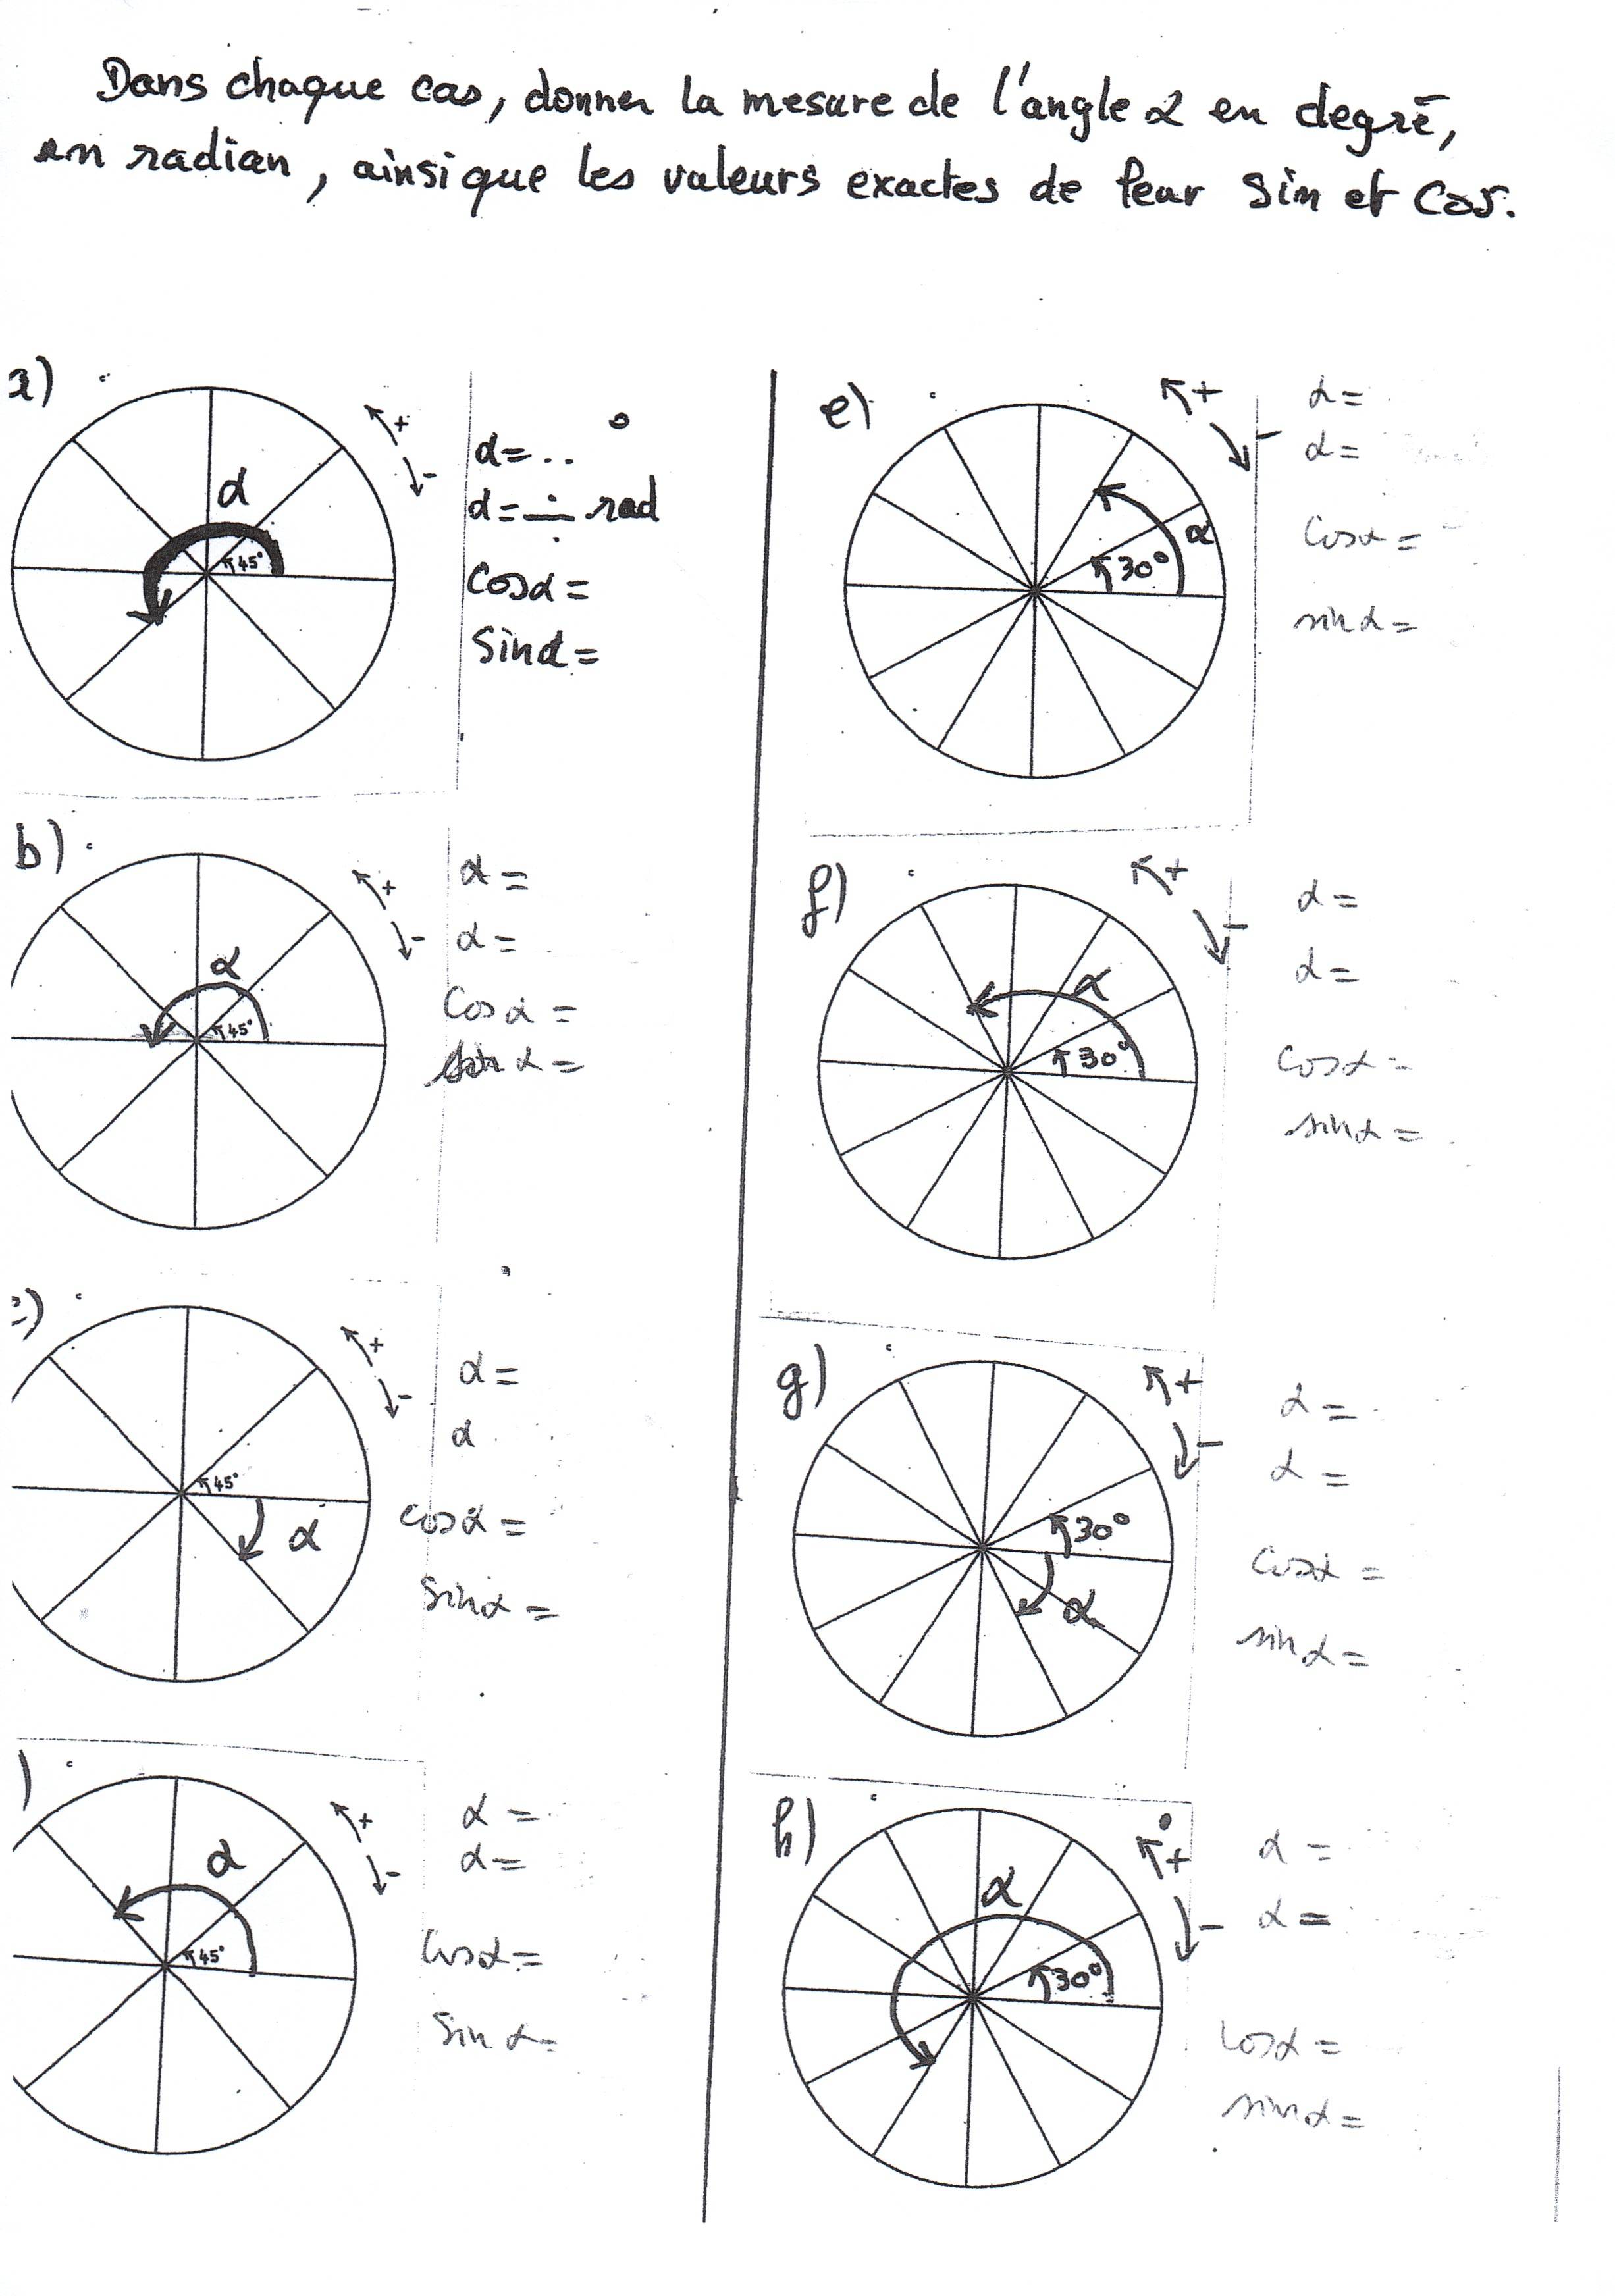 Dans chaque cas, donner la mesure de l'angle α en degré,
en radian, ainsi que les valeurs exactes de leur sin et cos.
a)
+
-
α
45°
α = .. °
α = ... rad
Cosα =
Sinα =
b)
+
-
α
45°
α =
α =
Cosα =
sin α =
c)
+
-
45°
α
α =
α
cosα =
Sinα =
)
+
-
α
45°
α =
α =
Cosα =
Sin α =
e)
+
-
α
30°
α =
α =
Cosα =
sinα =
f)
+
-
α
30°
α =
α =
Cosα =
sinα =
g)
+
-
30°
α
α =
α =
Cosα =
sinα =
h)
+
-
α
30°
α =
α =
Cosα =
sinα =